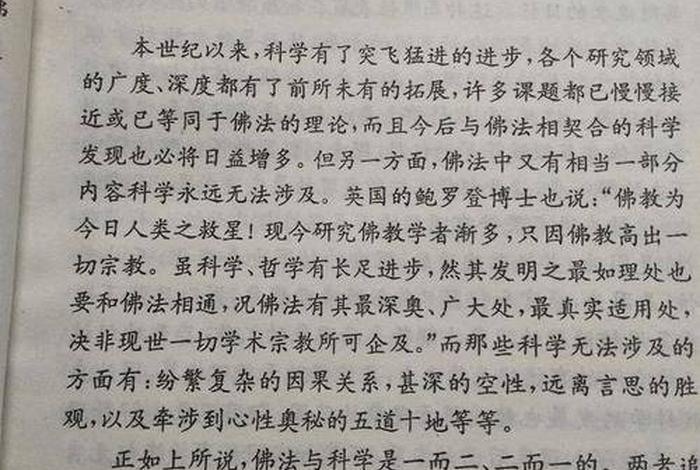 本世纪以来,科学有了突飞猛进的进步,各个研究领域
的广度、深度都有了前所未有的拓展,许多课题都已慢慢接
近或已等同于佛法的理论,而且今后与佛法相契合的科学
发现也必将日益增多。但另一方面,佛法中又有相当一部分
内容科学永远无法涉及。英国的鲍罗登博士也说:“佛教为
今日人类之救星!现今研究佛教学者渐多,只因佛教高出一
切宗教。虽科学、哲学有长足进步,然其发明之最如理处也
要和佛法相通,况佛法有其最深奥、广大处,最真实适用处,
决非现世一切学术宗教所可企及。”而那些科学无法涉及的
方面有:纷繁复杂的因果关系,甚深的空性,远离言思的胜
观,以及牵涉到心性奥秘的五道十地等等。
正如上所说,佛法与科学是一而二、二而一的。两者追